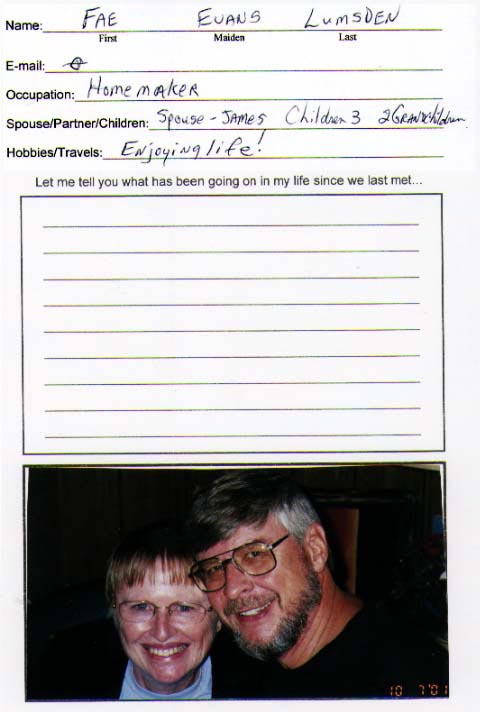 Name: FAE EVANS LUMSDEN
First Maiden Last
E-mail: ∅
Occupation: Homemaker
Spouse/Partner/Children: Spouse - JAMES Children 3 2 GRANDchildren
Hobbies/Travels: Enjoying life!
Let me tell you what has been going on in my life since we last met...
10 7'01